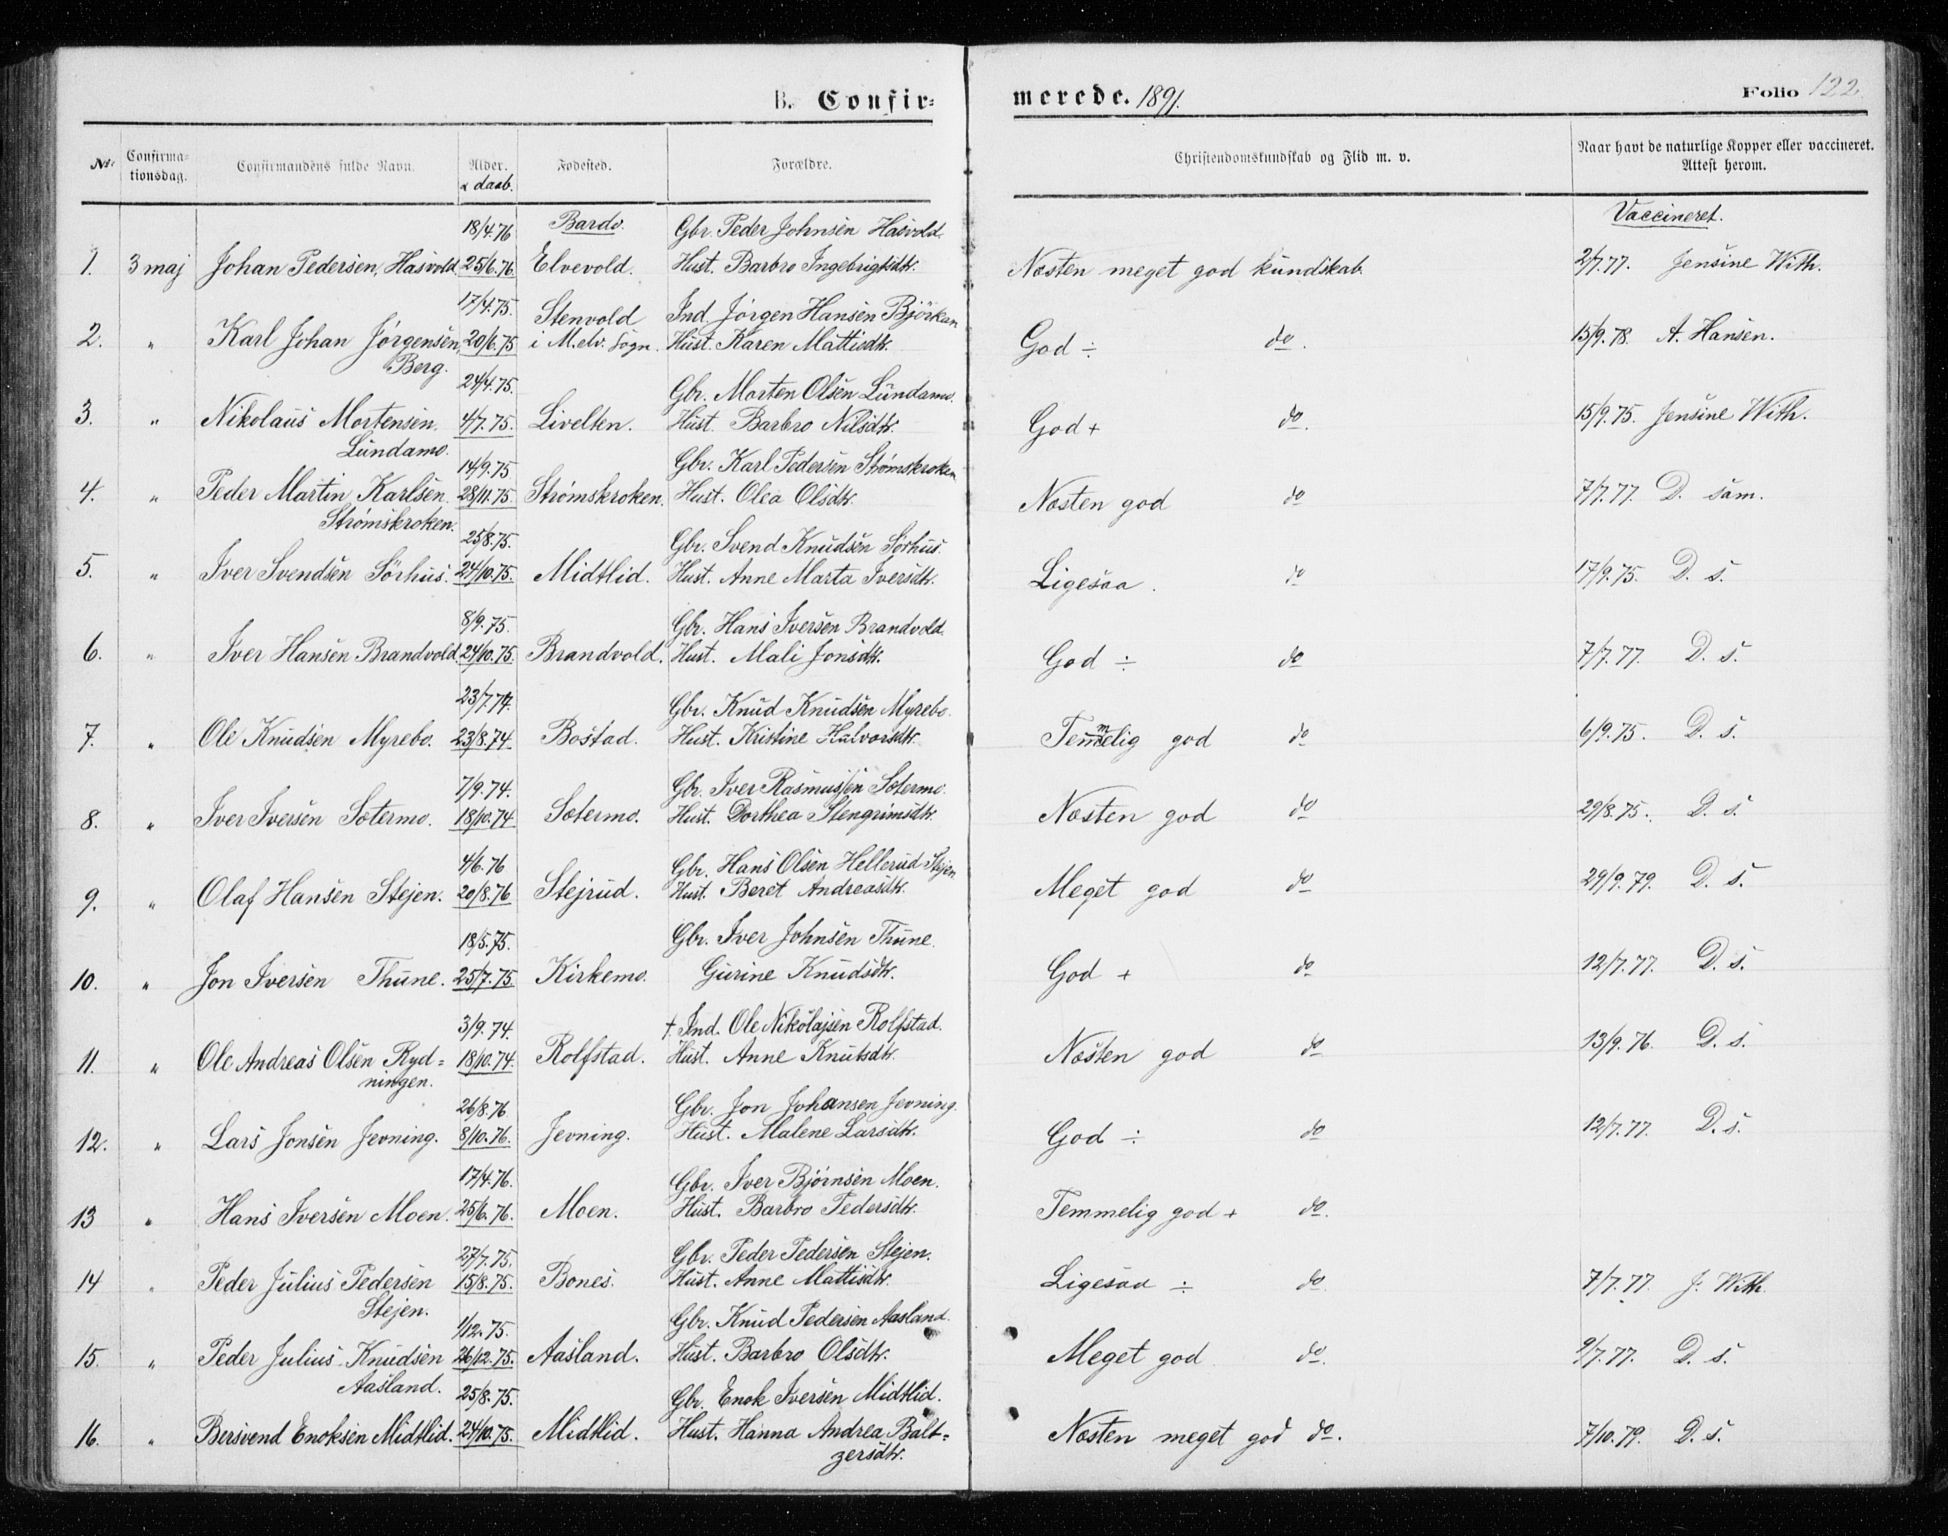 B. Confirmerede. 1891. Folio 122.
Nr. Confirmationsdag. Confirmandens fulde Navn. Alder. & daab. Fødested. Forældre. Christendomskundskab og Flid m. v. Naar havt de naturlige Kopper eller vaccineret. Attest herom.
18/4.76 Bardo. Gbr. Peder Johnsen Hasvold. Vaccineret.
1. 3 maj Johan Pedersen Hasvold 25/6.76. Elvevold. Hust. Barbro Ingebrigtsdtr. Næsten meget god kundskab. 2/7.77. Jensine With.
17/4.75. Stenvold Ind. Jørgen Hansen Björkan
2. " Karl Johan Jørgensen, 20/6.75 i M.elv. Sogn. Hust. Karen Mattisdtr. God ÷ do. 15/9.78. A. Hansen.
Berg.
24/4.75. Gbr. Morten Olsen Lundamo.
3. " Nikolaus Mortensen. 4/7.75. Livelten. Hust. Barbro Nilsdtr. God + do. 15/9.75. Jensine With.
Lundamo.
14/9.75 Gbr. Karl Pedersen Strømskroken
4. " Peder Martin Karlsen. 28/11.75. Strømskroken. Hust. Olea Olsdtr. Næsten god do 7/7.77. D. sam.
Strømskroken.
25/8.75. Gbr. Svend Knudsen Sørhus.
5. " Iver Svendsen Sörhus. 24/10.75. Midtlid. Hust. Anne Marta Iversdtr. Ligesaa. do 17/9.75. D. s.
8/9.75. Gbr. Hans Iversen Brandvold.
6. " Iver Hansen Brandvold 24/10.75. Brandvold. Hust. Mali Jonsdtr. God ÷ do 7/7.77. D. s.
23/7.74. Gbr. Knud Knudsen Myrebo.
7. " Ole Knudsen Myrebo. 23/8.74. Bostad. Hust. Kristine Halvorsdtr. Temmelig god do 6/9.75. D. s.
7/9.74. Gbr. Iver Rasmussen Sætermo.
8. " Iver Iversen Sætermo. 18/10.74 Sætermo. Hust. Dorthea Stengrimsdtr. Næsten god do 29/8.75. D. s.
4/6.76 Gbr. Hans Olsen Hellerud Stejen
9. " Olaf Hansen Stejen. 20/8.76 Stejrud. Hust. Beret Andreasdtr. Meget god do 29/9.79. D. s.
18/5.75. Gbr. Iver Johnsen Thune.
10. " Jon Iversen Thune. 25/7.75. Kirkemo. Gurine Knudsdtr. God + do 12/7.77. D. s.
3/9.74. † Ind. Ole Nikolajsen Rolfstad.
11. " Ole Andreas Olsen Ryd= 18/10.74. Rolfstad. Hust. Anne Knutsdtr. Næsten god do 13/9.76. D. s.
ningen.
26/8.76 Gbr. Jon Johansen Jevning.
12. " Lars Jonsen Jevning. 8/10.76. Jevning. Hust. Malene Larsdtr. God ÷ do 12/7.77. D. s.
17/4.76. Gbr. Iver Bjørnsen Moen.
13 " Hans Iversen Moen. 25/6.76. Moen. Hust. Barbro Pedersdtr. Temmelig god + do.
27/7.75. Gbr. Peder Pedersen Stejen.
14 " Peder Julius Pedersen 15/8.75. Bones. Hust. Anne Mattisdtr. Ligesaa ÷ do. 7/7.77. J. With.
Stejen.
1/12.75. Gbr. Knud Pedersen Aasland.
15. " Peder Julius Knudsen 26/12.75. Aasland. Hust. Barbro Olsdtr. Meget god do. 9/7.77. D. s.
Aasland.
25/8.75. Gbr. Enok Iversen Midtlid.
16. " Bersvend Enoksen Midtlid. 24/10.75. Midtlid. Hust. Hanna Andrea Balt= Næsten meget god do. 7/10.79. D. s.
zersdtr.